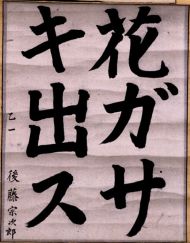 花ガサ
キ出ス
乙一 後藤宗次郎